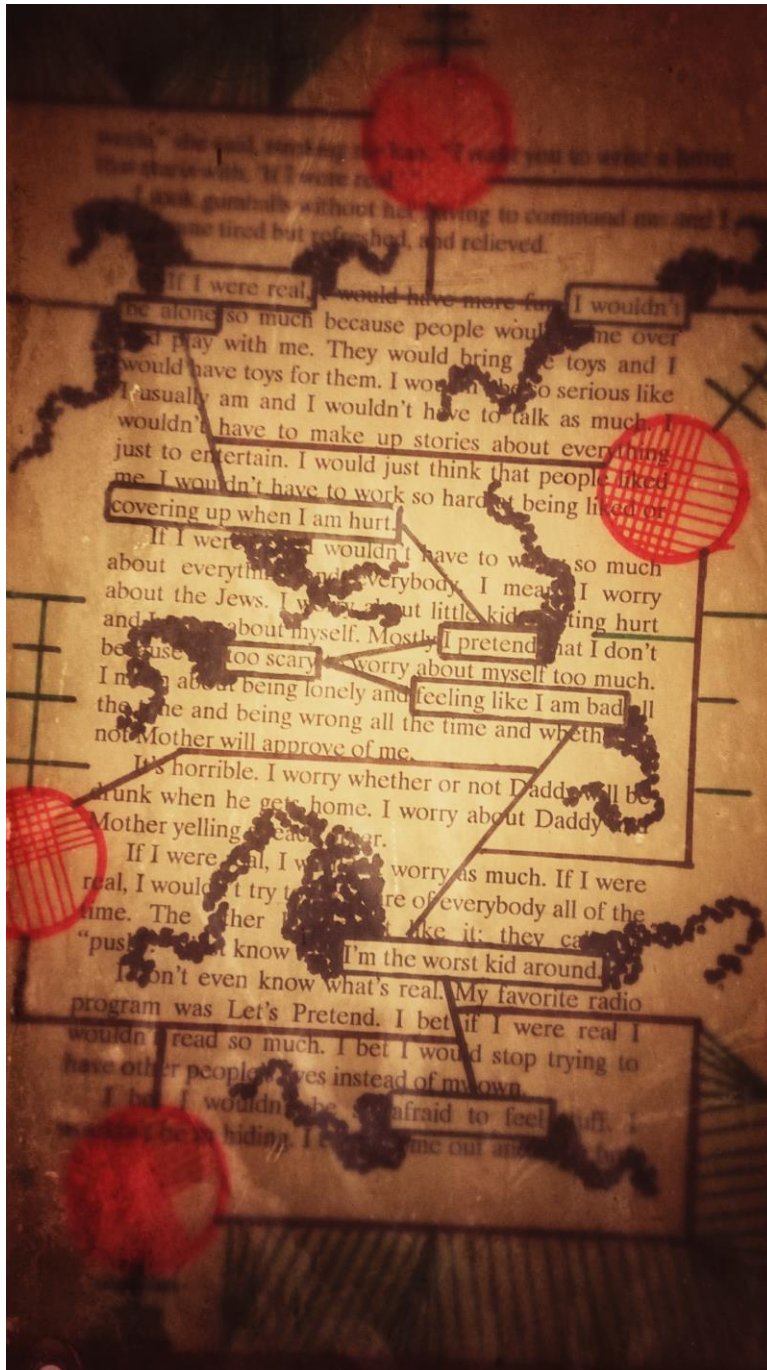 week," she said, stroking my hair. "I want you to write a letter
that starts with, 'If I were real.'"
I took gumballs without her having to command me and I
came tired but refreshed, and relieved.
If I were real, I would have more fun I wouldn't
be alone so much because people would me over
and play with me. They would bring me toys and I
would have toys for them. I wouldn't be so serious like
I usually am and I wouldn't have to talk as much. I
wouldn't have to make up stories about everything
just to entertain. I would just think that people liked
me. I wouldn't have to work so hard at being liked or
covering up when I am hurt.
If I were I wouldn't have to worry so much
about everything and everybody. I mean I worry
about the Jews. I worry about little kids getting hurt
and I about myself. Mostly I pretend that I don't
because too scary worry about myself too much.
I mean about being lonely and feeling like I am bad all
the time and being wrong all the time and whether
not Mother will approve of me.
It's horrible. I worry whether or not Daddy will be
drunk when he gets home. I worry about Daddy and
Mother yelling each other.
If I were real, I worry as much. If I were
real, I wouldn't try to care of everybody all of the
time. The other like it; they call
"pushy." I know I'm the worst kid around.
I don't even know what's real. My favorite radio
program was Let's Pretend. I bet if I were real I
wouldn't read so much. I bet I would stop trying to
have other people's lives instead of my own.
I bet I wouldn't be so afraid to feel stuff. I
wouldn't be in hiding. I come out and